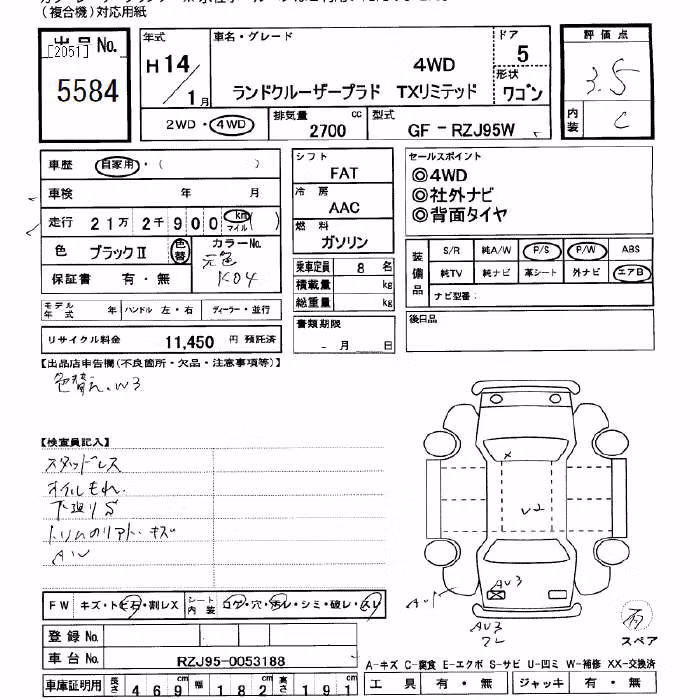 （複合機）対応用紙
出品No.
[2051]
5584
年式
H14/1月
車名・グレード
4WD
ランドクルーザープラド TXリミテッド
ドア
5
形状
ワゴン
評価点
3.5
内装
C
2WD・4WD
排気量
2700
cc
型式
GF-RZJ95W
車歴 自家用・（ ）
車検 年 月
走行 21万2千900 km マイル ( )
色 ブラックⅡ 色替
カラーNo.
元色
K04
保証書 有・無
モデル年式 年 ハンドル 左・右 ディーラー・並行
リサイクル料金 11,450 円 預託済
シフト
FAT
冷房
AAC
燃料
ガソリン
乗車定員 8 名
積載量 kg
総重量 kg
書類期限
- 月 日
セールスポイント
◎4WD
◎社外ナビ
◎背面タイヤ
装備品
S/R 純A/W P/S P/W ABS
純TV 純ナビ 革シート 外ナビ エアB
ナビ型番：
後日品
【出品店申告欄(不良箇所・欠品・注意事項等)】
色替え、W3
【検査員記入】
スタッドレス
オイルもれ
下廻りS
キズ
AW
X
U2
AU1
AU3
AU3
フレ
FW キズ・トビ石・割レX
シート内装 コゲ・穴・汚レ・シミ・破レ・スレ
登録No.
車台No. RZJ95-0053188
車庫証明用 長さ 469cm 幅 182cm 高さ 191
スペア
A-キズ C-腐食 E-エクボ S-サビ U-凹ミ W-補修 XX-交換済
工具 有・無 ジャッキ 有・無